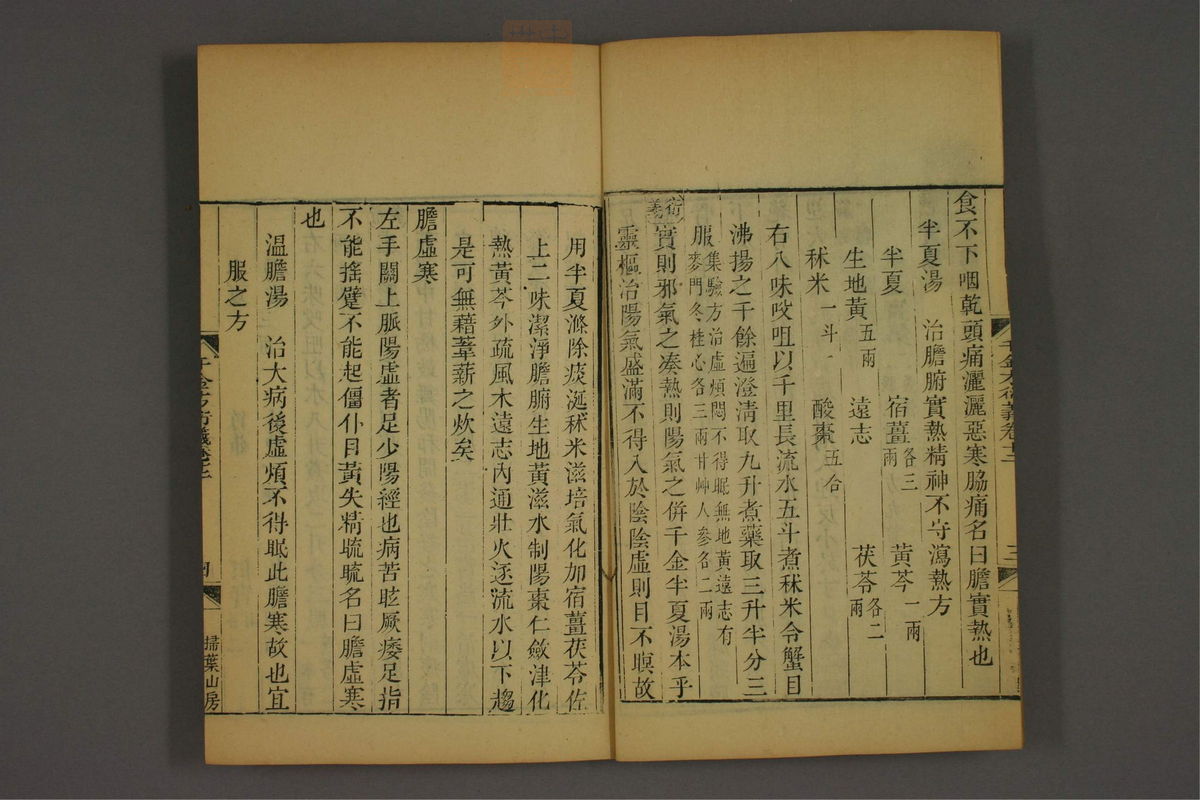 食不下咽乾頭痛灑灑惡寒脇痛名曰膽實熱也
半夏湯　治膽腑實熱精神不守瀉熱方
半夏　宿薑各三兩　黃芩一兩
生地黃五兩　遠志　茯苓各二兩
秫米一斗　酸棗五合
右八味㕮咀以千里長流水五斗煮秫米令蟹目
沸揚之千餘遍澄清取九升煮藥取三升半分三
服集驗方治虛煩悶不得眠無地黃遠志有
麥門冬桂心各三兩甘艸人參各二兩
衍義實則邪氣之凑熱則陽氣之併千金半夏湯本乎
靈樞治陽氣盛滿不得入於陰陰虛則目不瞑故
用半夏滌除痰涎秫米滋培氣化加宿薑茯苓佐
上二味潔淨膽腑生地黃滋水制陽棗仁斂津化
熱黃芩外疏風木遠志內通壯火逐流水以下趨
是可無藉葦薪之炊矣
膽虛寒
左手關上脈陽虛者足少陽經也病苦眩厥痿足指
不能搖躄不能起僵仆目黃失精䀮䀮名曰膽虛寒
也
溫膽湯　治大病後虛煩不得眠此膽寒故也宜
服之方
掃葉山房